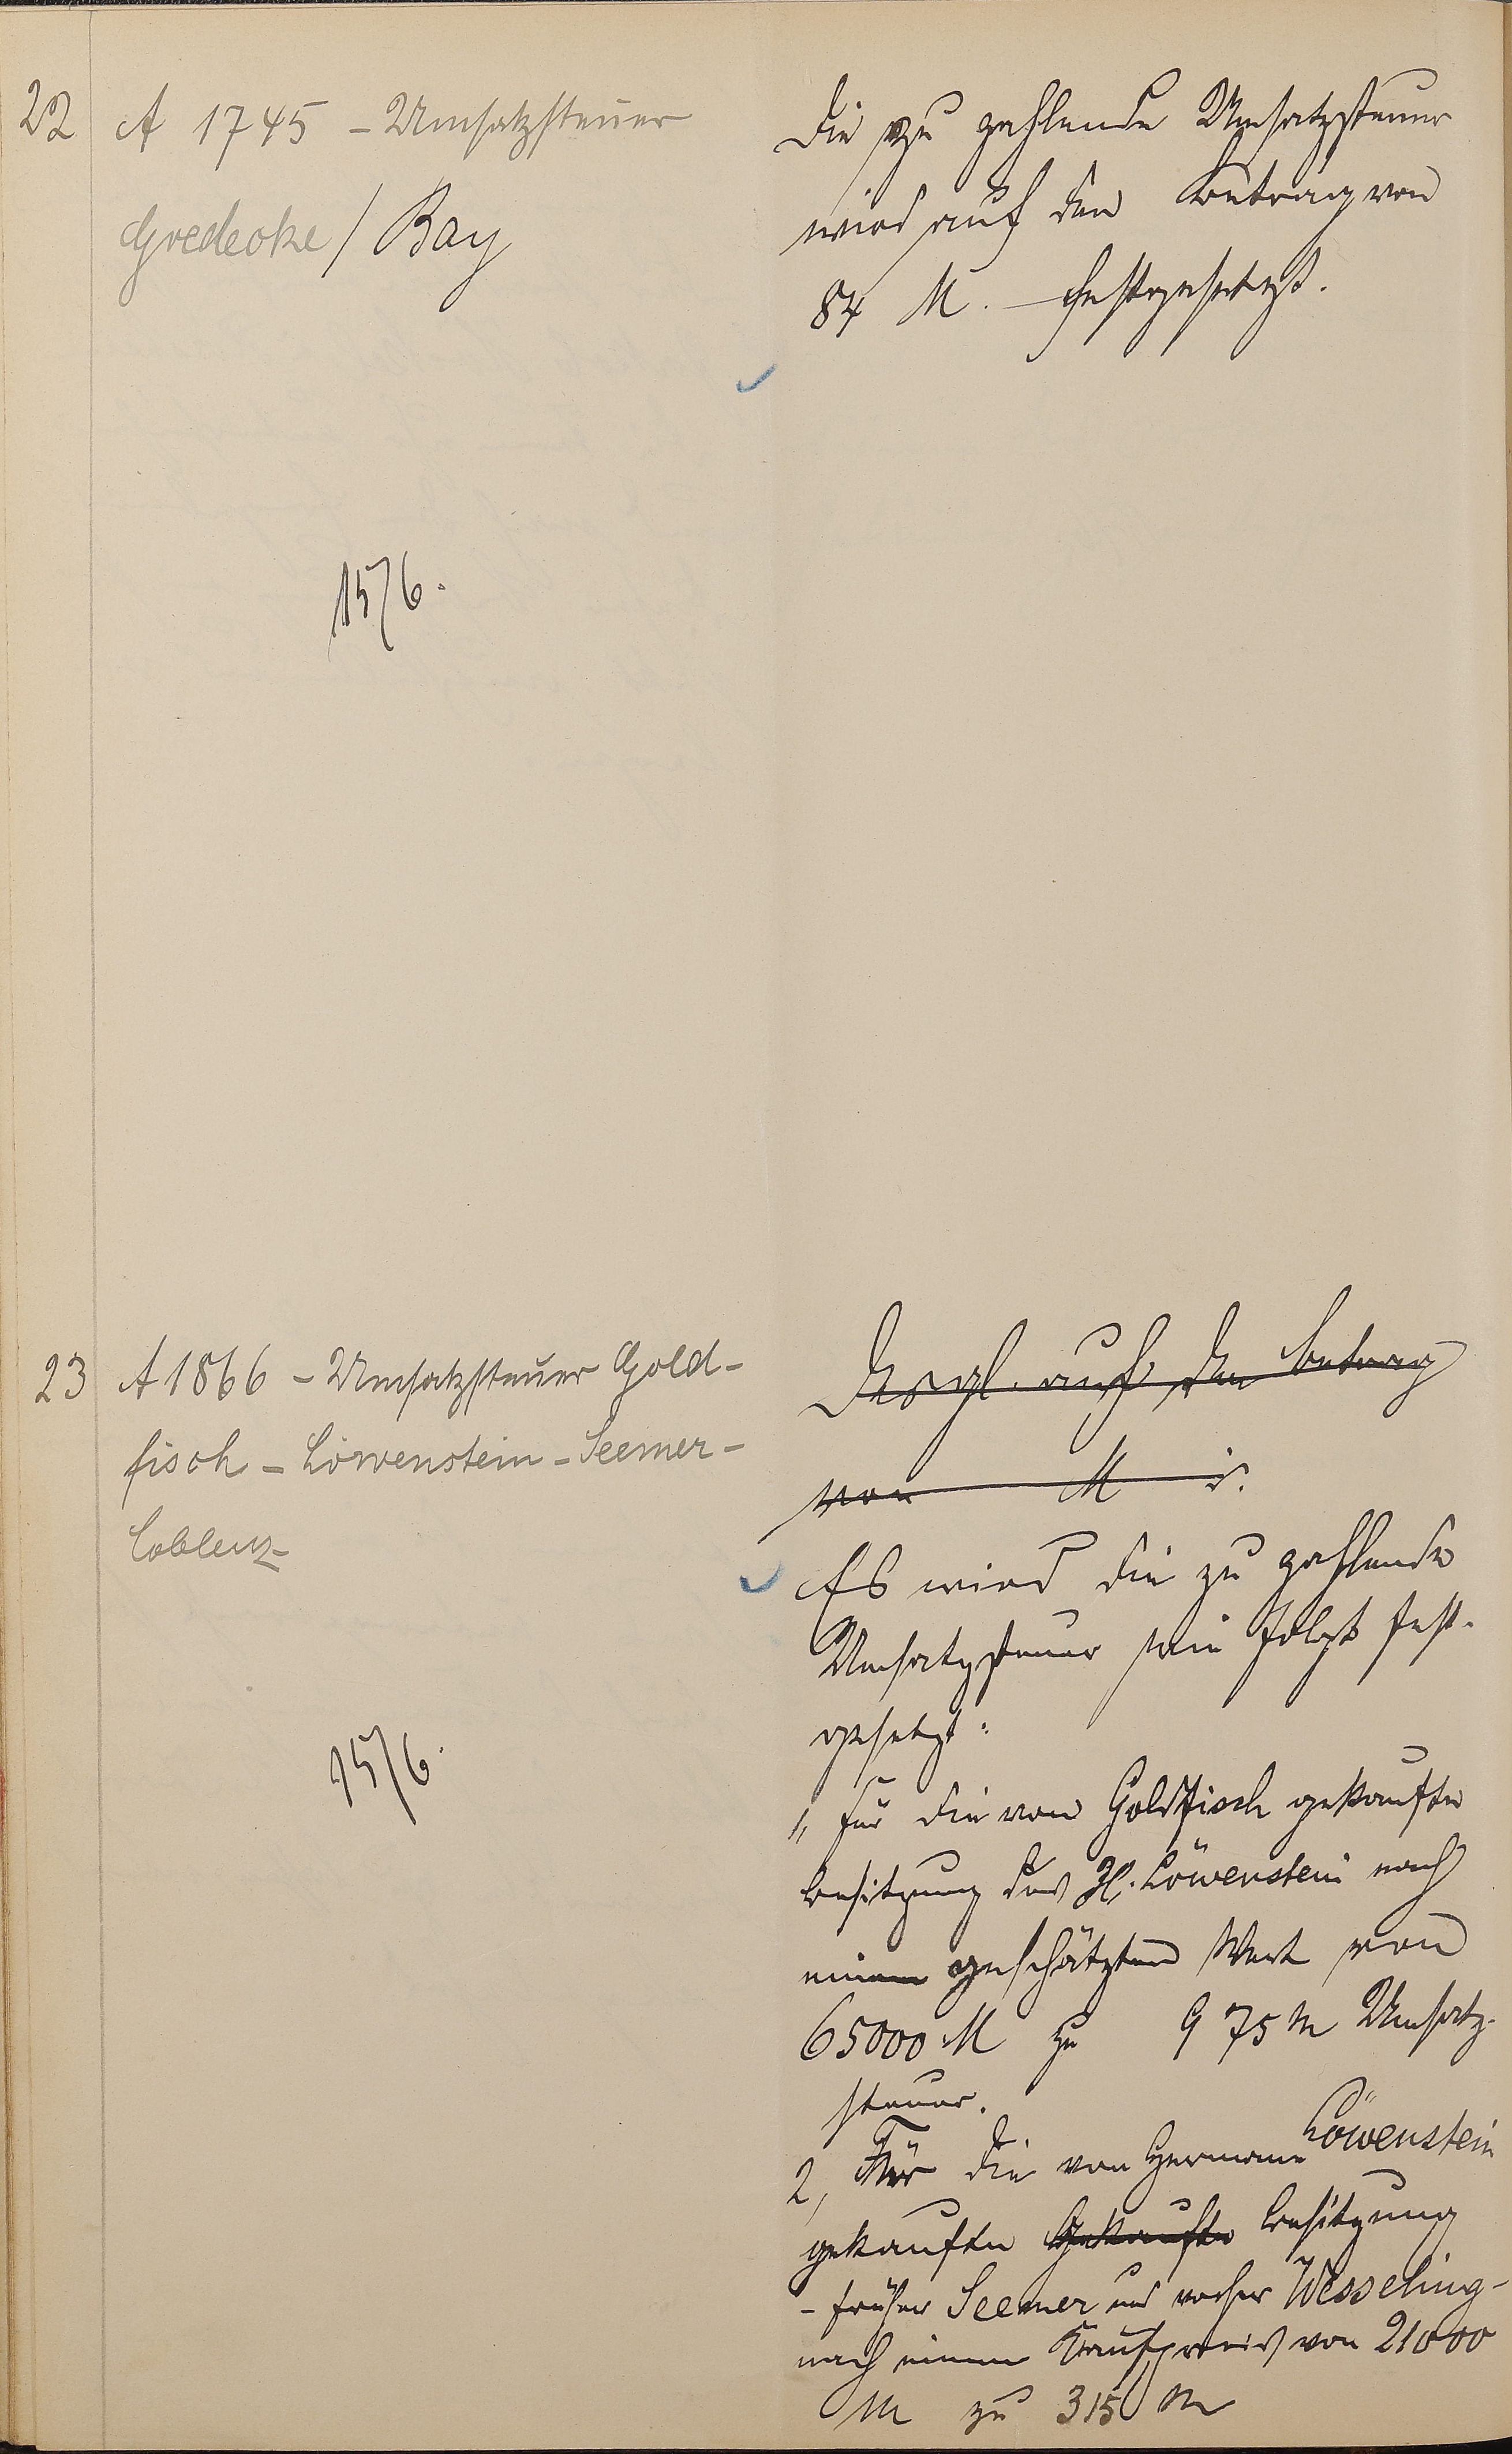 22 A 1745 - Umsatzsteuer
Gredecke / Bay
15/6.
Die zu zahlende Umsatzsteuer
wird auf den Betrag von
84 M. festgesetzt.
23 A 1866 - Umsatzsteuer Gold-
fisch - Löwenstein - Seemer -
Coblenz
15/6.
Desgl. auf den Betrag
von M
Es wird die zu zahlende
Umsatzsteuer wie folgt fest-
gesetzt:
1, für die von Goldfisch gekaufte
Besitzung des H. Löwenstein nach
einem geschätzten Wert von
65000 M zu 975 M Umsatz-
steuer.
2, Für die von Hermann Löwenstein
gekaufte gekaufte Besitzung
- früher Seemer und vorher Wesseling -
nach einem Kaufpreis von 21000
M zu 315 M